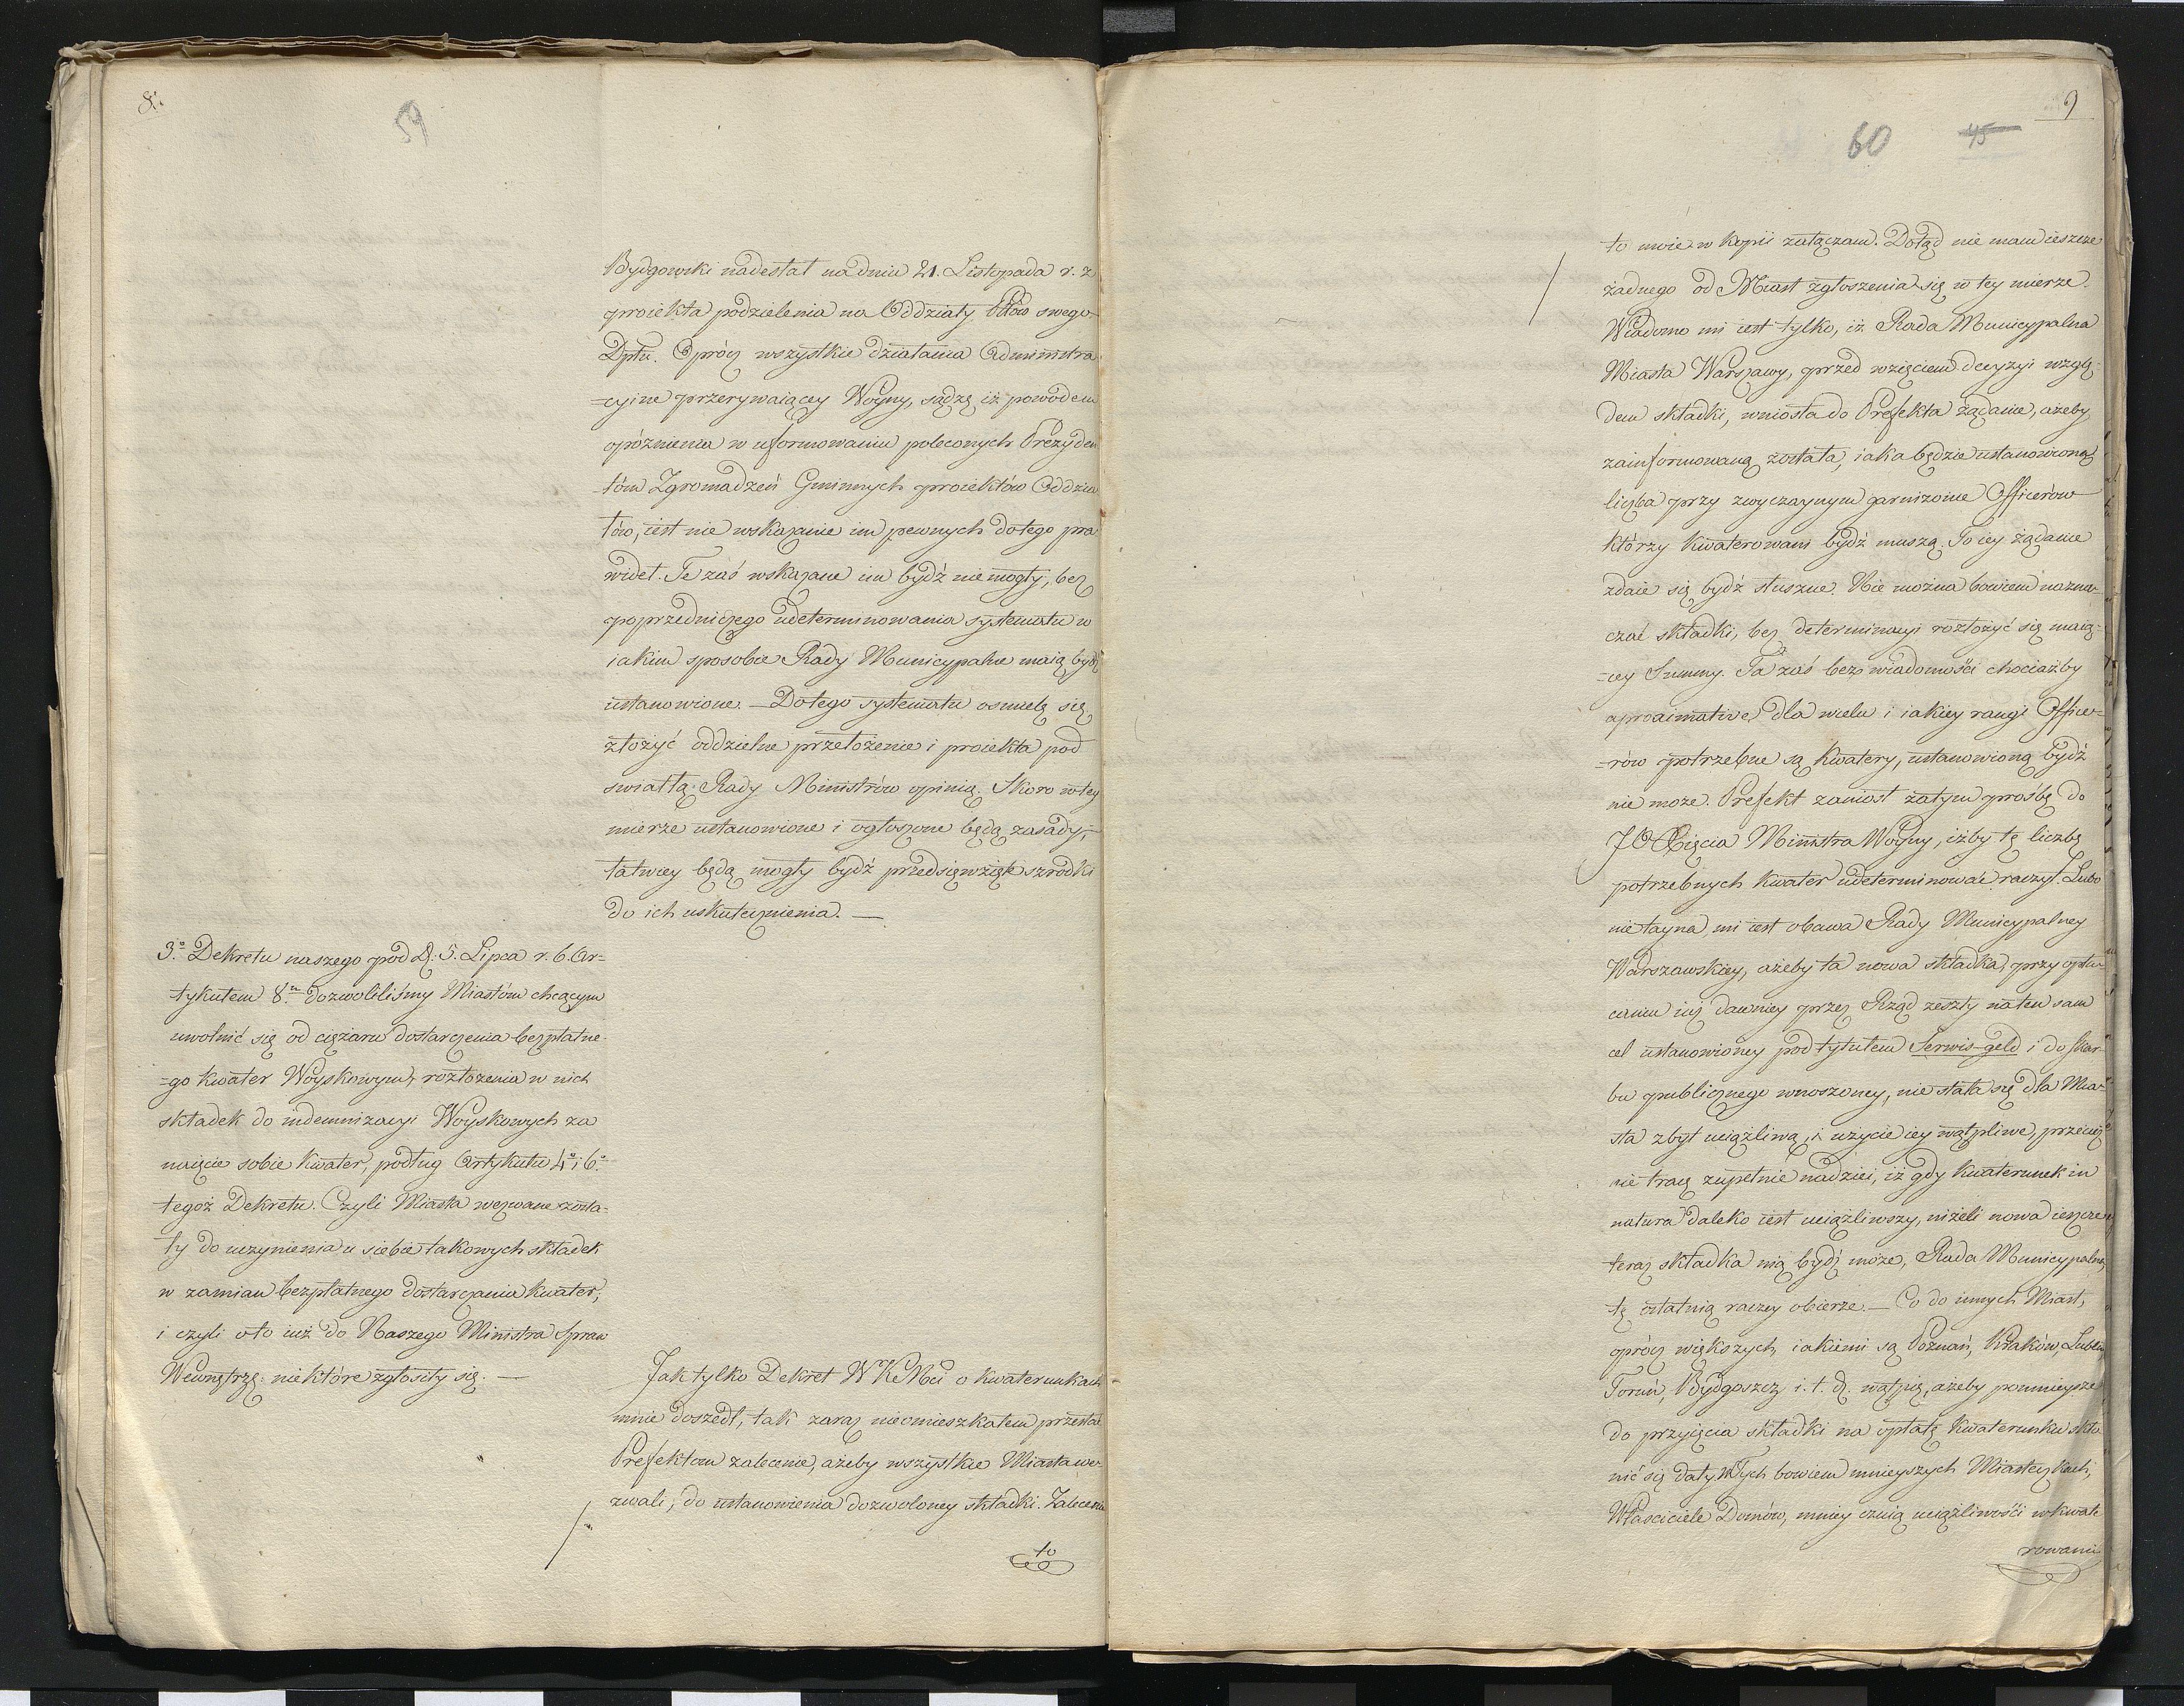 8.
59
Bydgowski nadesłał na dniu 21. Listopada r. z
proiekta podzielenia na Oddziały Ptów swego
Dptu. Oprócz wszystkie działania Administra
=cyine przerywaiącey Woyny, sądzę iż powodem
opóźnienia w uformowaniu poleconych Prezyden
=tom Zgromadzeń Gminnych proiektów Oddzia
łów, iest nie wskazanie im pewnych do tego pra
wideł. Te zaś wskazane im bydź nie mogły, bez
poprzedniczego udeterminowania systematu w
iakim sposobie Rady Municypalne maią bydź
ustanowione. — Do tego systematu osmielę się
złożyć oddzielne przełożenie i proiekta pod
swiatłą Rady Ministrów opinią. Skoro w tey
mierze ustanowione i ogłoszone będą zasady,
łatwiey będą mogły bydź przedsięwzięte szrodki
do ich uskutecznienia. —
3.o Dekretu naszego pod D. 5. Lipca r. b. Ar=
tykułem 8.m dozwoliliśmy Miastom chcącym
uwolnić się od ciężaru dostarczenia bezpłatne
=go kwater Woyskowym, rozłożenia w nich
składek do indemnizacyi Woyskowych za
naięcie sobie kwater, podług Artykułu 4.o i 6.o
tegoż Dekretu. Czyli Miasta wezwane zosta=
ły do uczynienia u siebie takowych składek
w zamian bezpłatnego dostarczania kwater,
i czyli oto iuż do Naszego Ministra Spraw
Wewnętrz: niektóre zgłosiły się. —
Jak tylko Dekret WKMci o kwaterunkach
mnie doszedł, tak zaraz nieomieszkałem przesłać
Prefektom zalecenie, ażeby wszystkie Miasta we
zwali, do ustanowienia dozwoloney składki. Zalecenie
to
9
60 45
to moie w kopii załączam. Dotąd nie mam ieszcze
żadnego od Miast zgłoszenia się w tey mierze.
Wiadomo mi iest tylko, iż Rada Municypalna
Miasta Warszawy, przed wzięciem decyzyi wzglę
dem składki, wniosła do Prefekta żądanie, ażeby
zainformowaną została, iaka będzie ustanowiona
liczba przy zwyczaynym garnizonie Officerów
którzy kwaterowani bydź muszą. To iey żądanie
zdaie się bydź słuszne. Nie można bowiem nazna
czać składki, bez determinacyi rozłożyć się maią=
=cey Summy. Ta zaś bez wiadomości chociażby
aproximative, dla wielu i iakiey rangi Office=
=rów potrzebne są kwatery, ustanowioną bydź
nie może. Prefekt zaniosł zatym prośbę do
JO Xięcia Ministra Woyny, iżby tę liczbę
potrzebnych kwater udeterminować raczył. Lubo
nie tayna mi iest obawa Rady Municypalney
Warszawskiey, ażeby ta nowa składka, przy opła
caniu iuż dawniey przez Rząd zeszły na ten sam
cel ustanowioney pod tytułem Serwis-geld i do skar
bu publicznego wnoszoney, nie stała się dla Mia
sta zbyt uciążliwą, i użycie iey wątpliwe, przecież
nie tracę zupełnie nadziei, iż gdy kwaterunek in
natura daleko iest uciążliwszy, niżeli nowa ieszcze
teraz składka nią bydź może, Rada Municypalna
tę ostatnią raczey obierze. — Co do innych Miast,
oprócz większych, iakiemi są Poznań, Kraków, Lublin,
Toruń, Bydgoszcz i. t. d. wątpię, ażeby pomnieysze
do przyięcia składki na opłatę kwaterunku skło
nić się dały. W tych bowiem mnieyszych Miasteczkach,
Właściciele Domów, mniey czuią uciążliwości w kwate
rowaniu